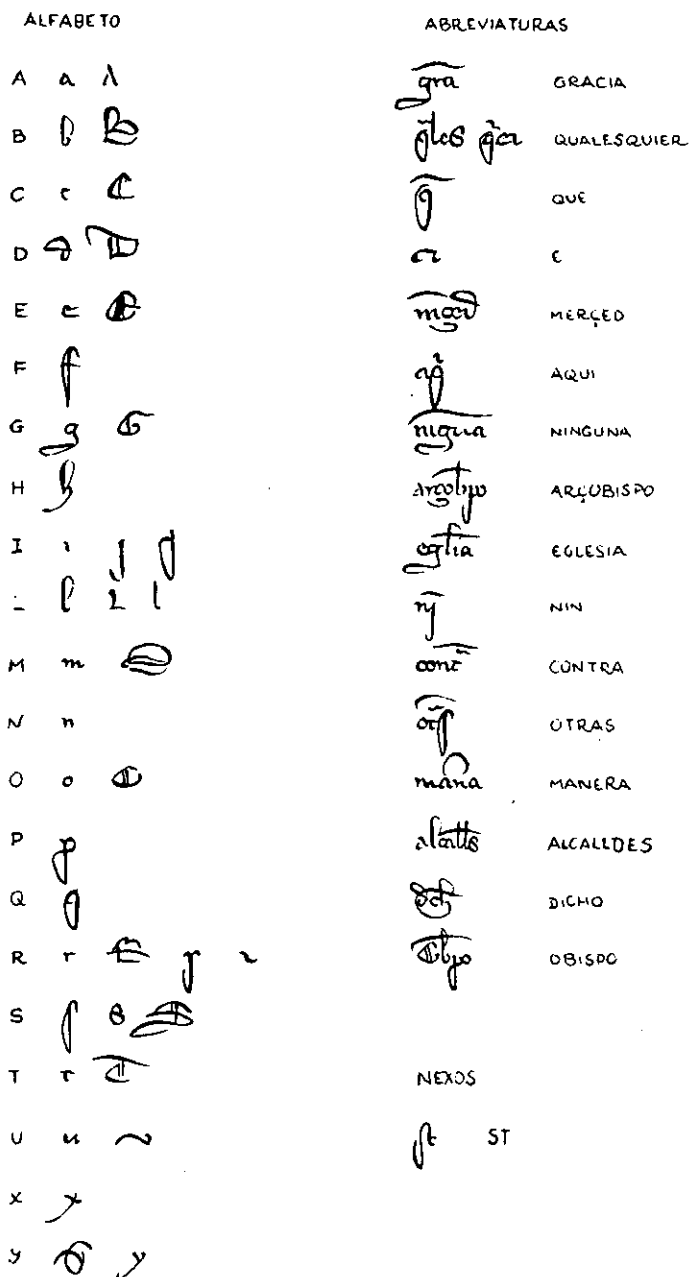 ALFABETO
A a λ
B b B
C c C
D d D
E e E
F f
G g G
H h
I ı j J
l l l
M m M
N n
O o O
P p
Q q
R r R r r
S ſ s S
T t T
U u
X x
Y y y
ABREVIATURAS
gra GRACIA
qles qer QUALESQUIER
q QUE
E
mced MERÇED
aq AQUI
nigua NINGUNA
arçobpo ARÇUBISPO
eglia EGLESIA
nj NIN
cont CONTRA
otſ OTRAS
mana MANERA
alcalls ALCALLDES
dch DICHO
Obpo OBISPO
NEXOS
ſt ST